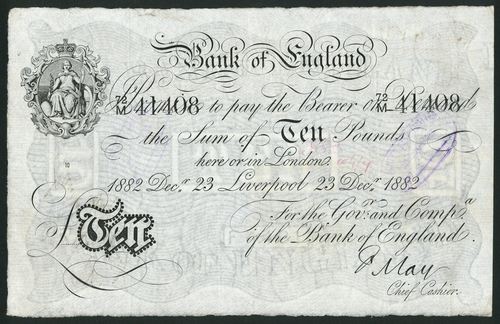 Bank of England
Promise to pay the Bearer on Demand
72/M 41408 72/M 41408
the Sum of Ten Pounds
here or in London.
1882 Decr. 23 Liverpool 23 Decr. 1882
For the Govr. and Compa.
of the Bank of England.
£Ten
F May
Chief Cashier.
10